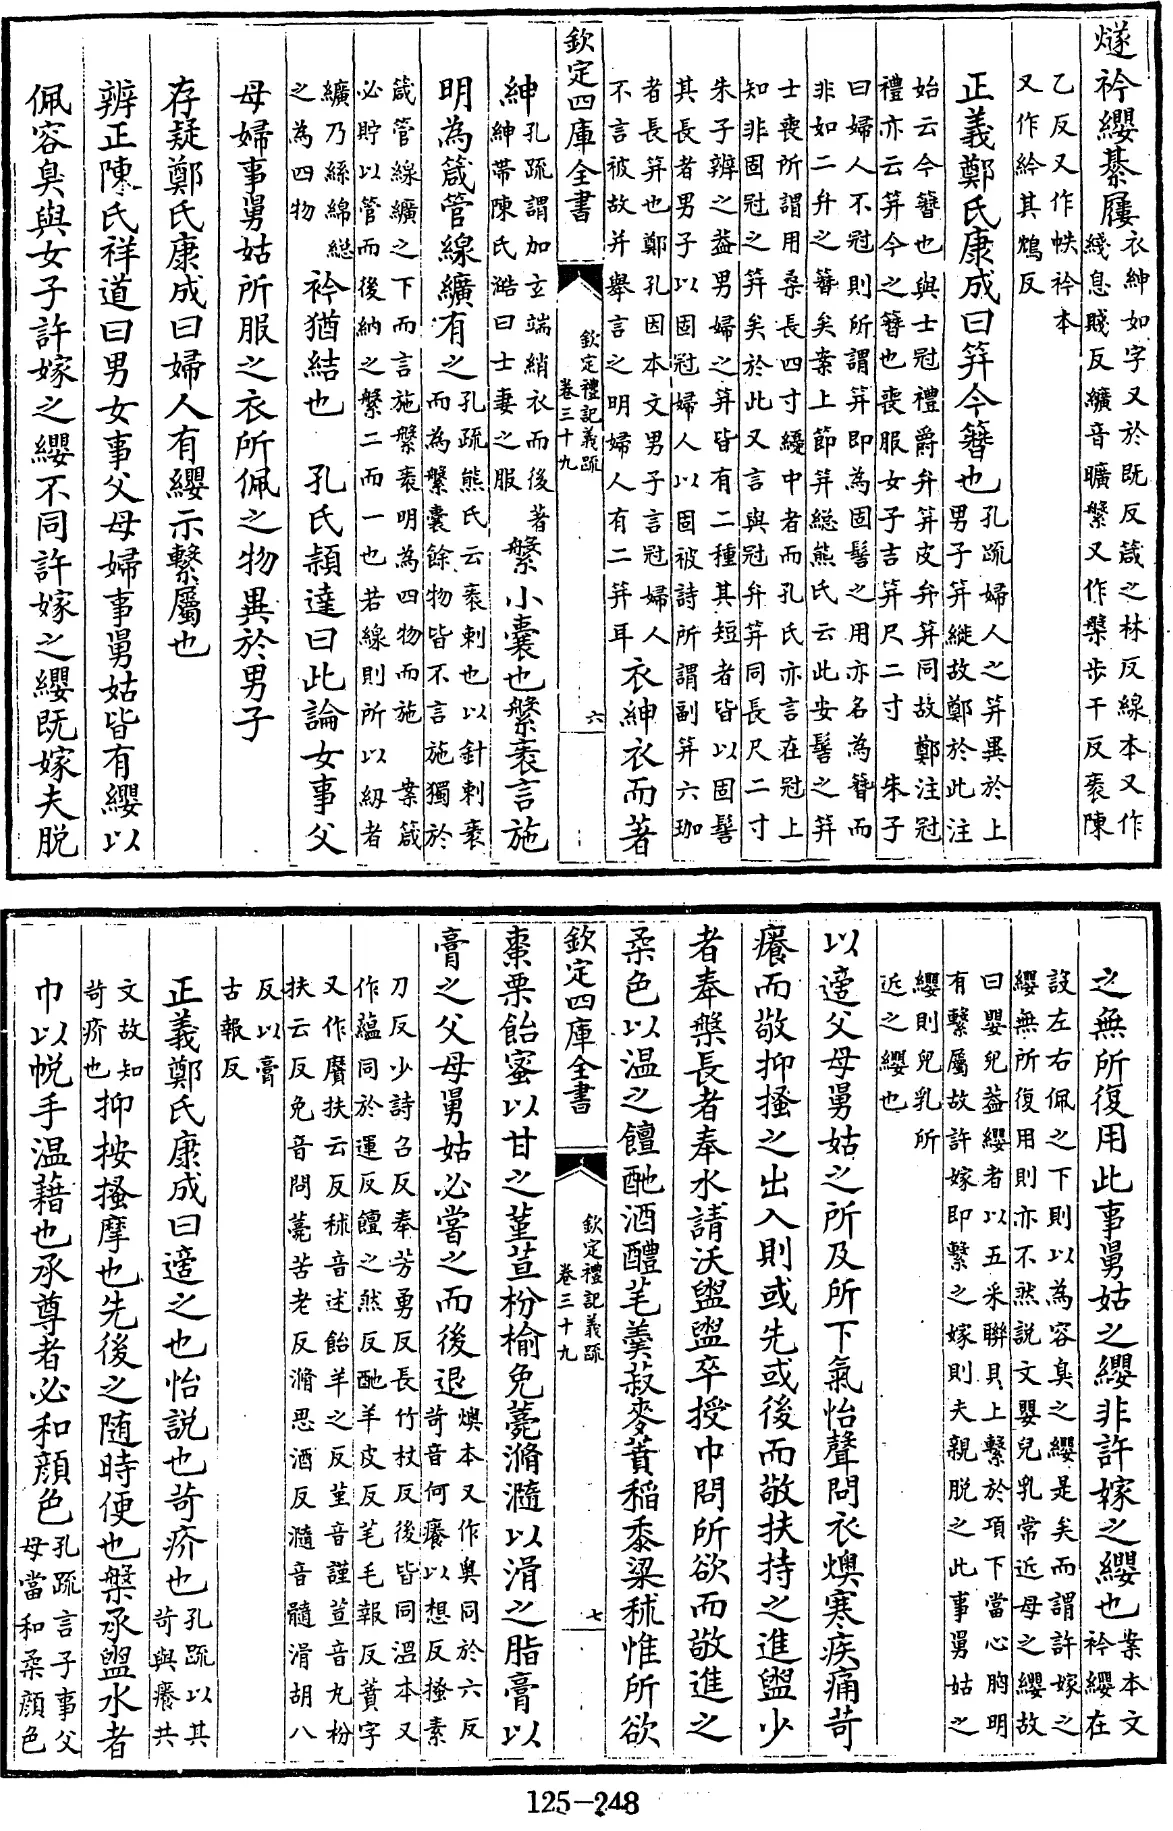 燧衿纓綦屨衣紳如字又於既反箴之林反線本又作
綫息賤反纊音曠繁又作槃步干反袠陳
乙反又作帙衿本
又作紟其鴆反
正義鄭氏康成曰笄今簪也孔疏婦人之笄異於上
男子笄縰故鄭於此注
始云今簪也與士冠禮爵弁笄皮弁笄同故鄭注冠
禮亦云笄今之簪也喪服女子吉笄尺二寸 朱子
曰婦人不冠則所謂笄即為固髻之用亦名為簪而
非如二弁之簪矣案上節笄總熊氏云此安髻之笄
士喪所謂用桑長四寸纋中者而孔氏亦言在冠上
知非固冠之笄矣於此又言與冠弁笄同長尺二寸
朱子辨之蓋男婦之笄皆有二種其短者皆以固髻
其長者男子以固冠婦人以固被詩所謂副笄六珈
者長笄也鄭孔因本文男子言冠婦人
不言被故并舉言之明婦人有二笄耳衣紳衣而著
欽定四庫全書
欽定禮記義疏
卷三十九
六
紳孔疏謂加玄端綃衣而後著
紳帶陳氏澔曰士妻之服繁小囊也繁袠言施
明為箴管線纊有之孔疏熊氏云袠刺也以針刺袠
而為繁囊餘物皆不言施獨於
箴管線纊之下而言施繁袠明為四物而施 案箴
必貯以管而後納之繁二而一也若線則所以紉者
纊乃絲綿總
之為四物衿猶結也 孔氏穎達曰此論女事父
母婦事舅姑所服之衣所佩之物異於男子
存疑鄭氏康成曰婦人有纓示繫屬也
辨正陳氏祥道曰男女事父母婦事舅姑皆有纓以
佩容臭與女子許嫁之纓不同許嫁之纓既嫁夫脱
之無所復用此事舅姑之纓非許嫁之纓也案本文
衿纓在
設左右佩之下則以為容臭之纓是矣而謂許嫁之
纓無所復用則亦不然說文嬰兒乳常近母之纓故
曰嬰兒蓋纓者以五采聯貝上繫於項下當心胸明
有繫屬故許嫁即繫之嫁則夫親脱之此事舅姑之
纓則兒乳所
近之纓也
以適父母舅姑之所及所下氣怡聲問衣燠寒疾痛苛
癢而敬抑搔之出入則或先或後而敬扶持之進盥少
者奉槃長者奉水請沃盥盥卒授巾問所欲而敬進之
柔色以温之饘酏酒醴芼羹菽麥蕡稻黍粱秫惟所欲
欽定四庫全書
欽定禮記義疏
卷三十九
七
棗栗飴蜜以甘之堇荁枌榆免薧滫瀡以滑之脂膏以
膏之父母舅姑必嘗之而後退燠本又作奧同於六反
苛音何癢以想反搔素
刀反少詩召反奉芳勇反長竹杖反後皆同温本又
作藴同於運反饘之然反酏羊皮反芼毛報反蕡字
又作黂扶云反秫音述飴羊之反堇音謹荁音丸枌
扶云反免音問薧苦老反滫思酒反瀡音髓滑胡八
反以膏
古報反
正義鄭氏康成曰適之也怡說也苛疥也孔疏以其
苛與癢共
文故知
苛疥也抑按搔摩也先後之随時便也槃承盥水者
巾以帨手温藉也承尊者必和顏色孔疏言子事父
母當和柔顏色
125-248